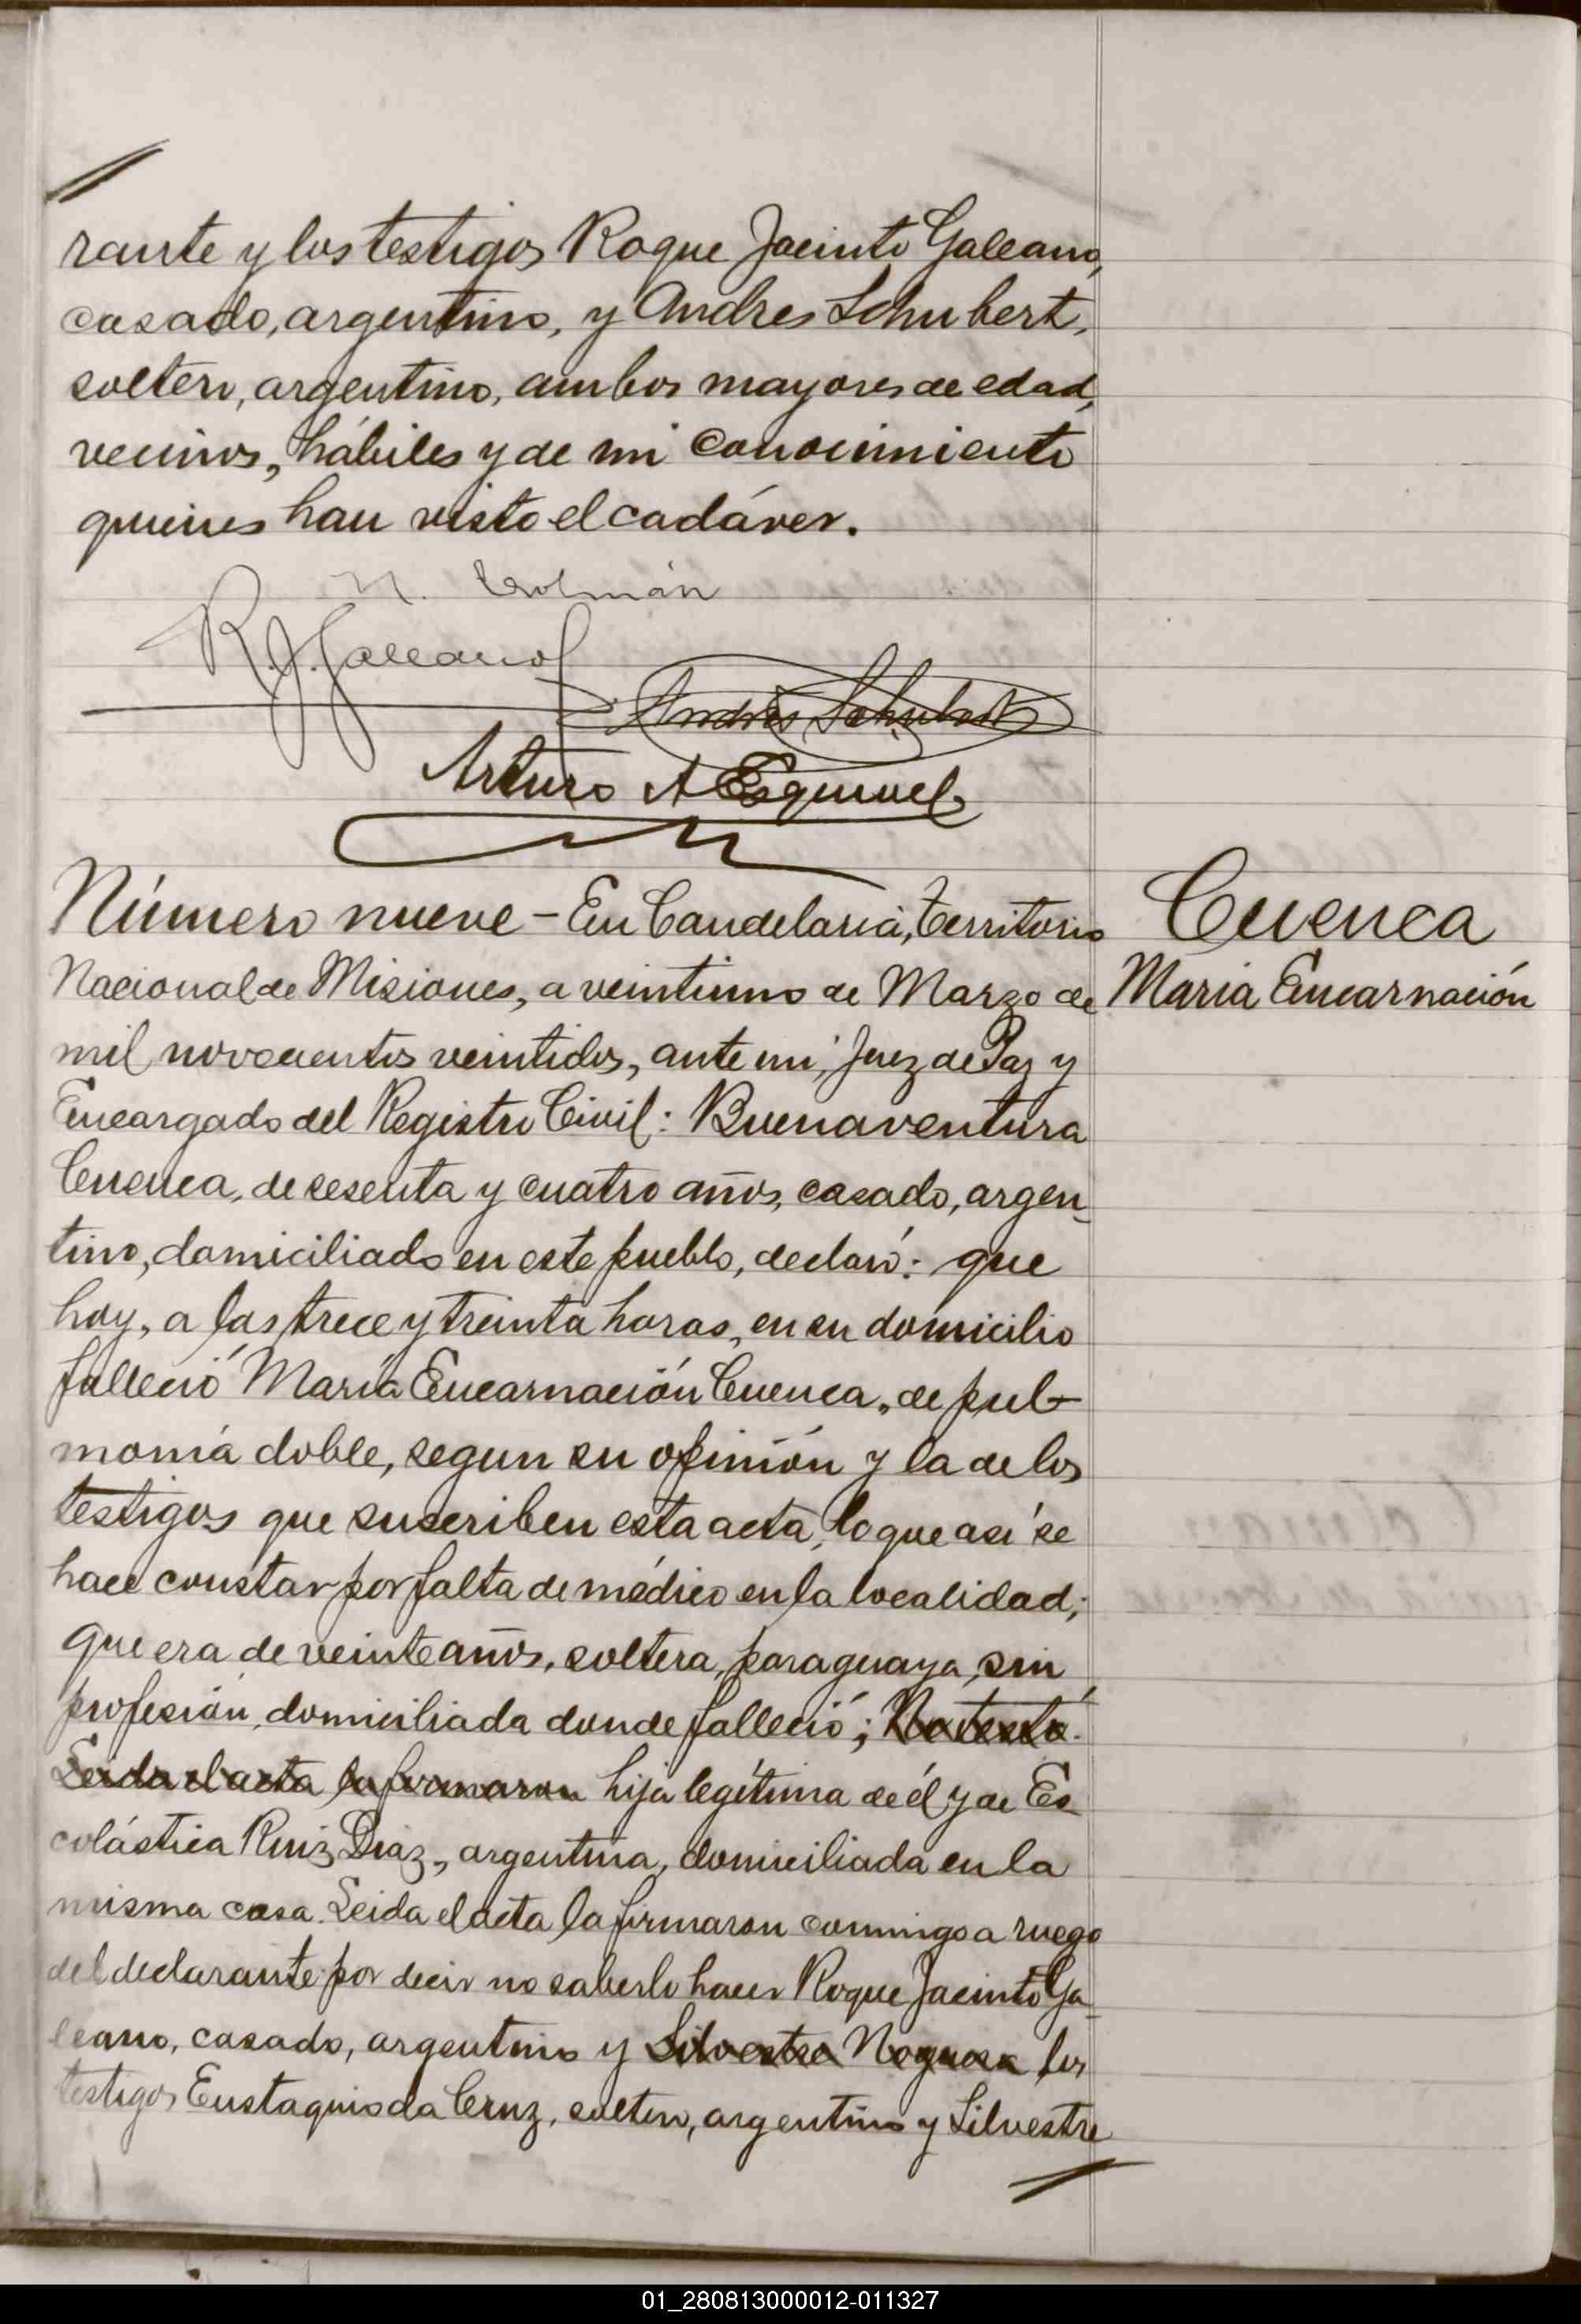 rante y los testigos Roque Jacinto Galeano,
casado, argentino, y Andres Schubert,
soltero, argentino, ambos mayores de edad,
vecinos, hábiles y de mi conocimiento
quienes han visto el cadáver.
N. Colmán
R. J. Galeano
Andrés Schubert
Arturo A Esquivel
Número nueve - En Candelaria, Territorio
Cuenca
Nacional de Misiones, a veintiuno de Marzo de
María Encarnación
mil novecientos veintidos, ante mi, Juez de Paz y
Encargado del Registro Civil: Buenaventura
Cuenca, de sesenta y cuatro años, casado, argen-
tino, domiciliado en este pueblo, declaró: que
hoy, a las trece y treinta horas, en su domicilio
falleció María Encarnación Cuenca, de pul-
monía doble, segun su opinión y la de los
testigos que suscriben esta acta, lo que así se
hace constar por falta de médico en la localidad;
que era de veinte años, soltera, paraguaya, sin
profesión, domiciliada donde falleció; No testó.
Leida el acta la firmaron hija legítima de él y de Es-
colástica Ruiz Diaz, argentina, domiciliada en la
misma casa. Leida el acta la firmaron conmigo a ruego
del declarante por decir no saberlo hacer Roque Jacinto Ga-
leano, casado, argentino y Silvestre Noguera los
testigos Eustaquio da Cruz, soltero, argentino y Silvestre
01_280813000012-011327